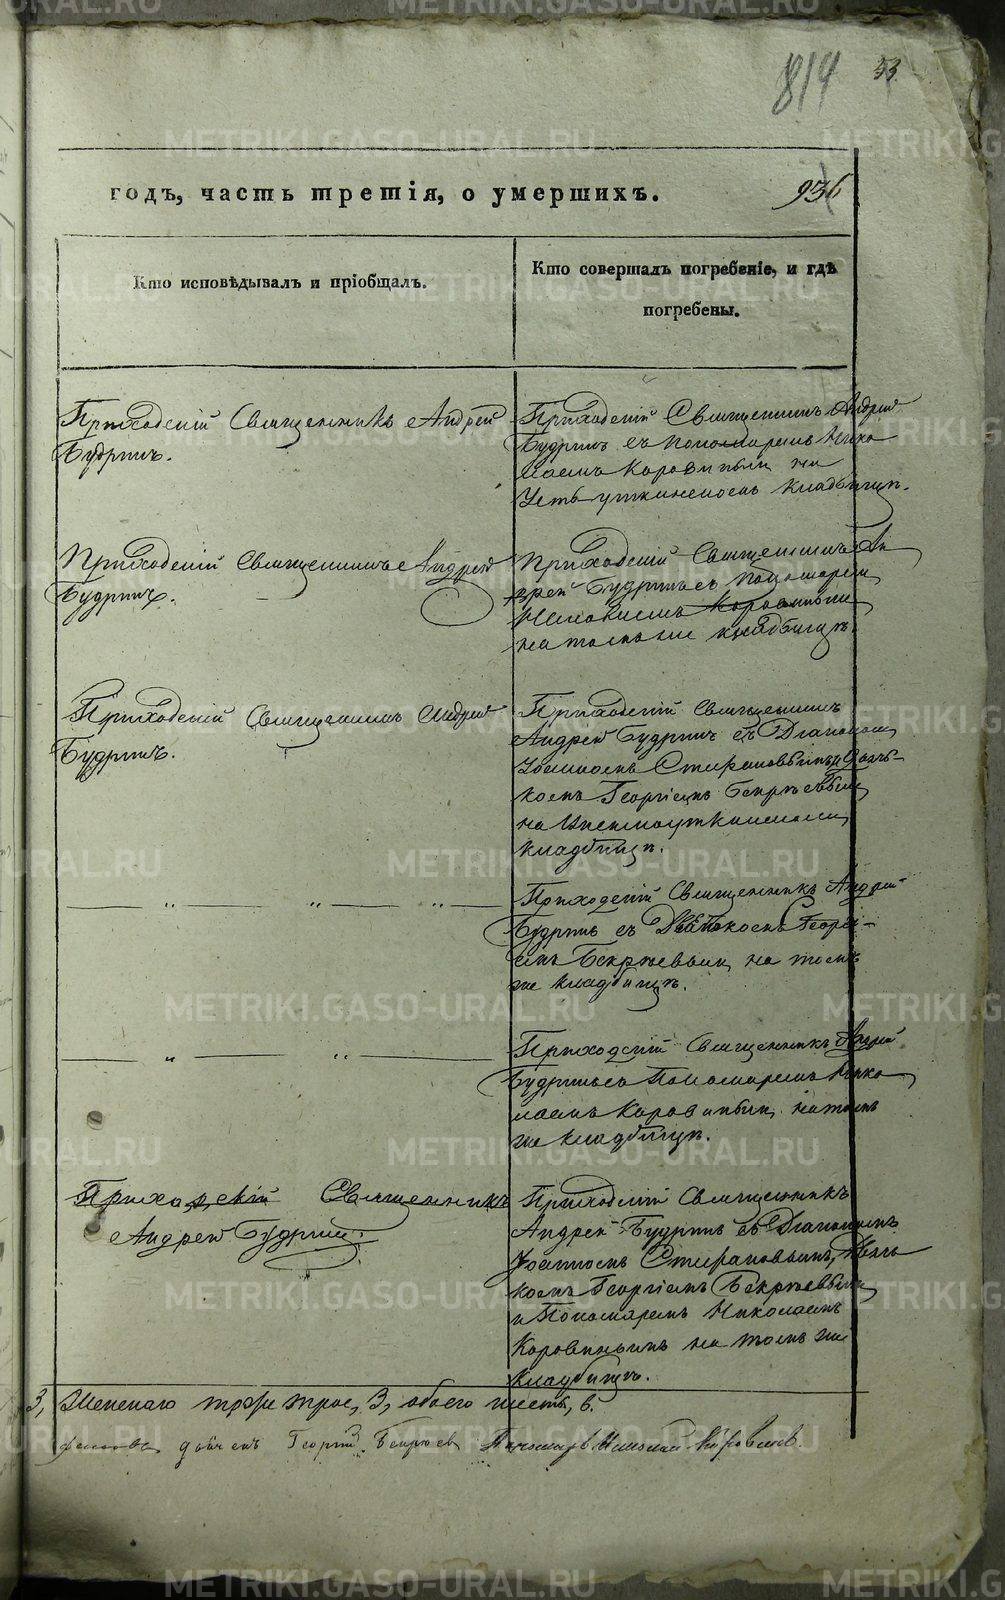 814 53
годъ, часть третія, о умершихъ.
936
Кто исповѣдывалъ и пріобщалъ.
Кто совершалъ погребеніе, и гдѣ
погребены.
Приходскій Священникъ Андрей
Будринъ.
Приходскій Священникъ Андрей
Будринъ съ пономаремъ Нико
лаемъ Коровинымъ на
Усть-уткинскомъ кладбищѣ.
Приходскій Священникъ Андрей
Будринъ.
Приходскій Священникъ Ан
дрей Будринъ съ пономаремъ
Николаемъ Коровинымъ
на томъ же кладбищѣ.
Приходскій Священникъ Андрей
Будринъ.
Приходскій Священникъ
Андрей Будринъ съ Діакономъ
Іоанномъ Стефановымъ, Дьяч-
комъ Георгіемъ Бекряевымъ
на
кладбищѣ.
Приходскій Священникъ Андрей
Будринъ съ Дьячкомъ Георгі-
емъ Бекряевымъ на томъ
же кладбищѣ.
Приходскій Священникъ Андрей
Будринъ съ Пономаремъ Нико
лаемъ Коровинымъ на томъ
же кладбищѣ.
Приходскій Священникъ
Андрей Будринъ.
Приходскій Священникъ
Андрей Будринъ съ Діакономъ
Іоанномъ Стефановымъ, Дьяч
комъ Георгіемъ Бекряевымъ
и Пономаремъ Николаемъ
Коровинымъ на томъ же
кладбищѣ.
3, Женскаго трое, 3, обоего шесть, 6.
дьячекъ Георгій Бекряев Пономарь Николай Коровинъ.
METRIKI.GASO-URAL.RU